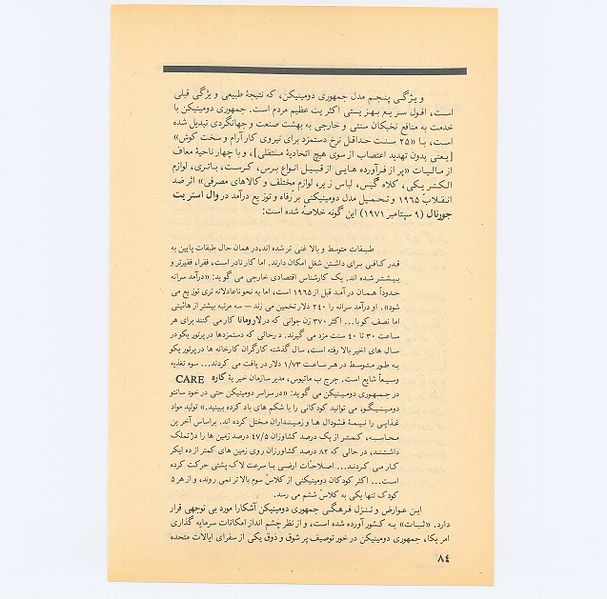 ویژگی پنجم مدل جمهوری دومینیکن، که نتیجهٔ طبیعی ویژگی قبلی
است، افول سریع بهزیستی اکثریت عظیم مردم است. جمهوری دومینیکن با
خدمت به منافع نخبگان سنتی و خارجی به بهشت صنعت و جهانگردی تبدیل شده
است، با «۲۵ سنت حداقل نرخ دستمزد برای نیروی کار آرام و سخت کوش»
[یعنی بدون تهدید اعتصاب از سوی هیچ اتحادیهٔ مستقلی]، و با چهار ناحیهٔ معاف
از مالیات «پر از فرآورده هایی از قبیل انواع برس، کرست، باتری، لوازم
الکتریکی، کلاه گیس، لباس زیر، لوازم مختلف و کالاهای مصرفی» اثر ضد
انقلاب ۱۹۶۵ و تحمیل مدل دومینیکنی بر رفاه و توزیع درآمد در وال استریت
جورنال (۹ سپتامبر ۱۹۷۱) این گونه خلاصه شده است:
طبقات متوسط و بالا غنی تر شده اند، در همان حال طبقات پایین به
قدر کافی برای داشتن شغل امکان دارند. اما کار نادر است، فقرا، فقیرتر و
بیشتر شده اند. یک کارشناس اقتصادی خارجی می گوید: «درآمد سرانه
حدوداً همان درآمد قبل از ۱۹۶۵ است، اما به نحو ناعادلانه تری توزیع می
شود». او درآمد سرانه را ۲۴۰ دلار تخمین می زند — سه مرتبه بیشتر از هائیتی
اما نصف کوبا... اکثر ۳۷۰ زن جوانی که در لارومانا کار می کنند برای هر
ساعت ۳۰ تا ۴۰ سنت مزد می گیرند. درحالی که دستمزدها در پرتوریکو در
سال های اخیر بالا رفته است، سال گذشته کارگران کارخانه ها در پرتوریکو
به طور متوسط در هر ساعت ۱/۷۳ دلار دریافت می کردند... سوء تغذیه
وسیعاً شایع است. جرج ب ماتیوس، مدیر سازمان خیریهٔ کاره CARE
در جمهوری دومینیکن می گوید: «در سراسر دومینیکن حتی در خود سانتو
دومینیگو، می توانید کودکانی را با شکم های باد کرده ببینید.» تولید مواد
غذایی را نیمهٔ فئودال ها و زمینداران مختل کرده اند. براساس آخرین
محاسبه، کمتر از یک درصد کشاورزان ۴۷/۵ درصد زمین ها را در تملک
داشتند، در حالی که ۸۲ درصد کشاورزان روی زمین های کمتر از ده ایکر
کار می کردند... اصلاحات ارضی با سرعت لاک پشتی حرکت کرده
است... اکثر کودکان دومینیکنی از کلاس سوم بالاتر نمی روند، و از هر ۵
کودک تنها یکی به کلاس ششم می رسد.
این عوارض و تنزل فرهنگی جمهوری دومینیکن آشکارا مورد بی توجهی قرار
دارد. «ثبات» به کشور آورده شده است، و از نظر چشم انداز امکانات سرمایه گذاری
امریکا، جمهوری دومینیکن در خور توصیف پر شوق و ذوق یکی از سفرای ایالات متحده
۸۴